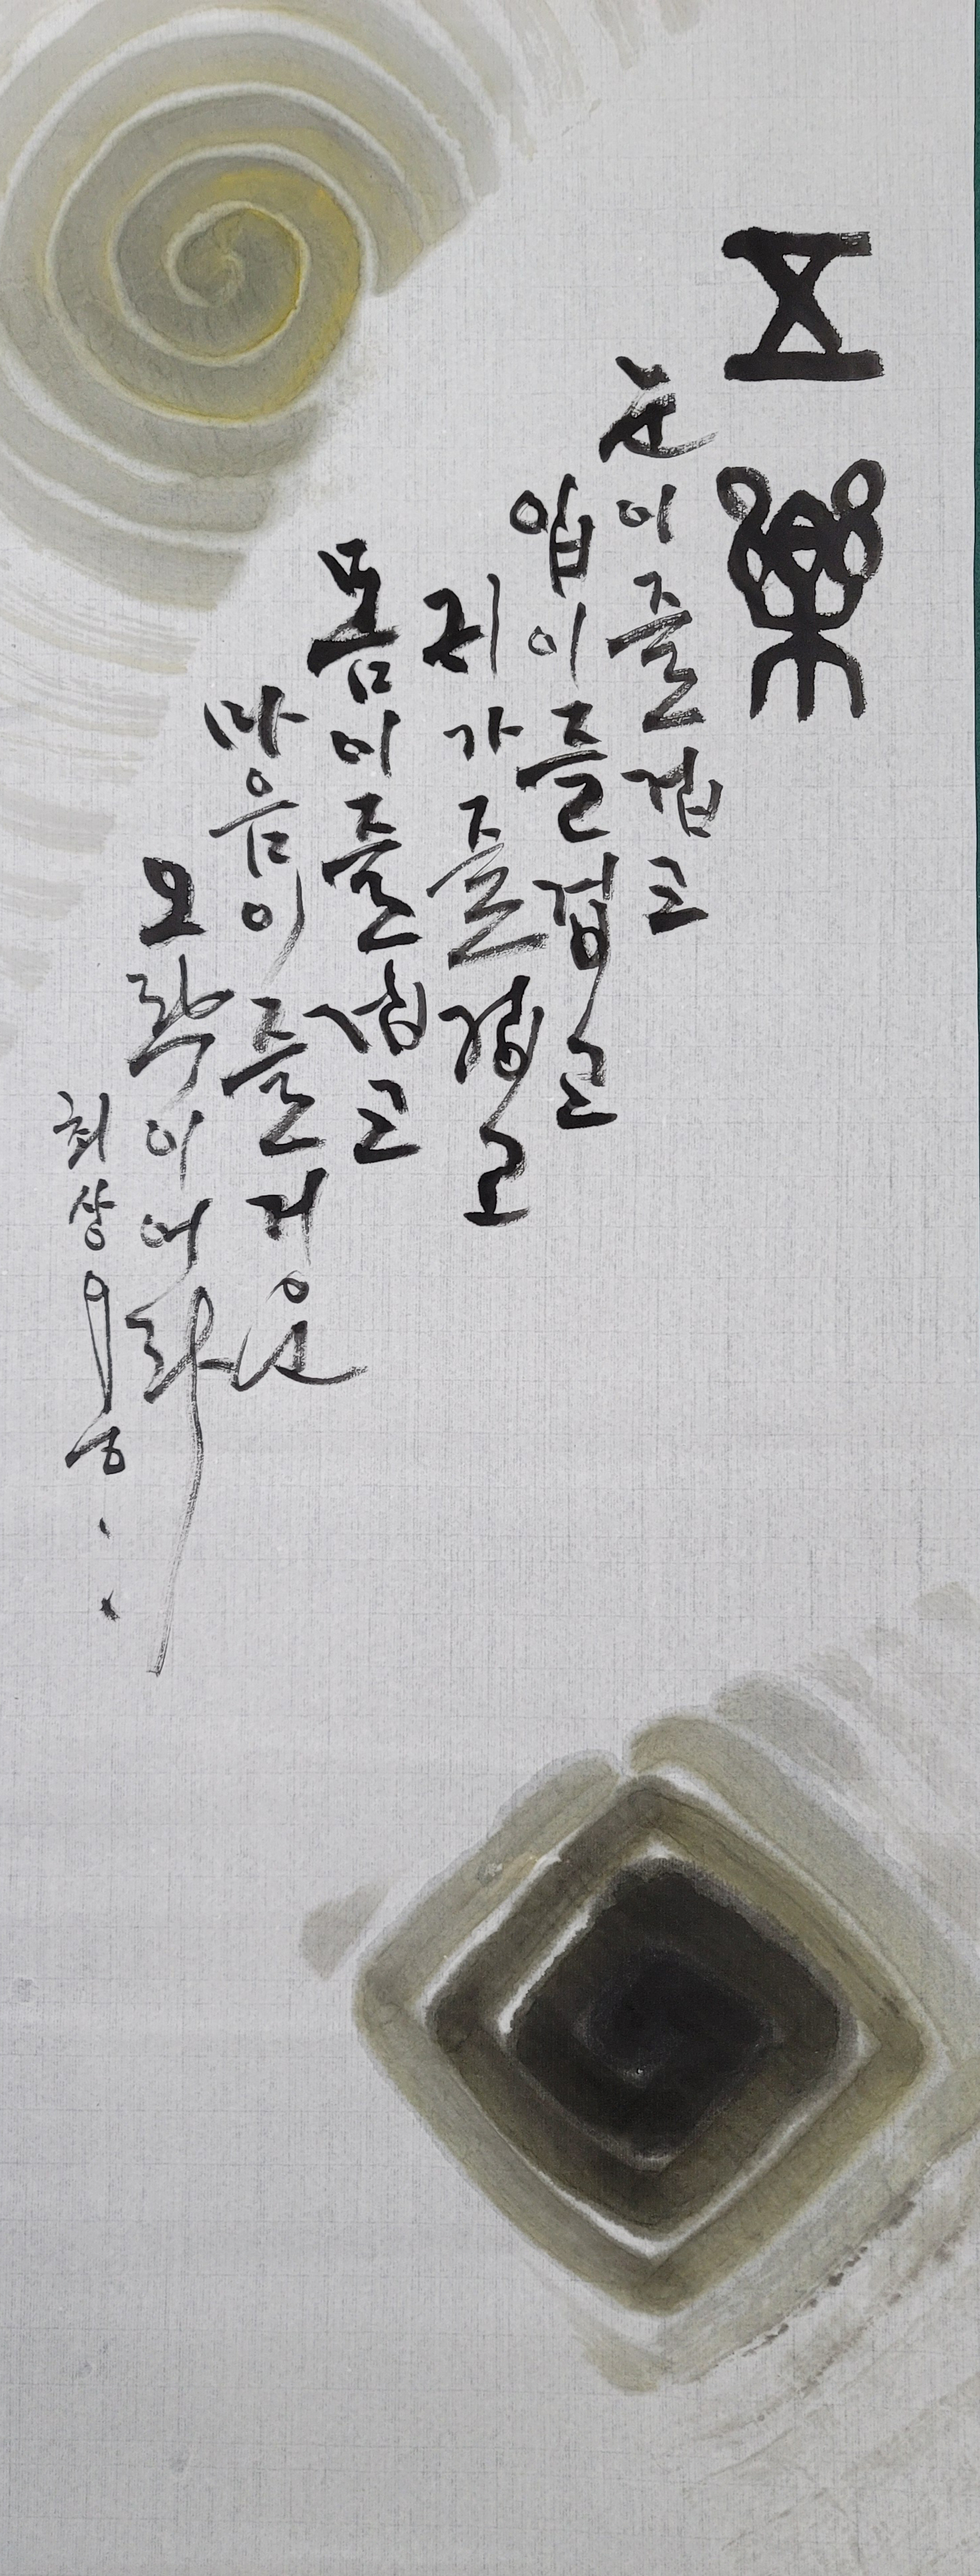 五樂
눈이 즐겁고
입이 즐겁고
귀가 즐겁고
몸이 즐겁고
마음이 즐거운
오락이어라
최상